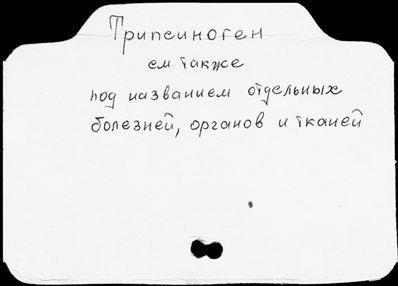 Трипсиноген
см. также
под названием отдельных
болезней, органов и тканей